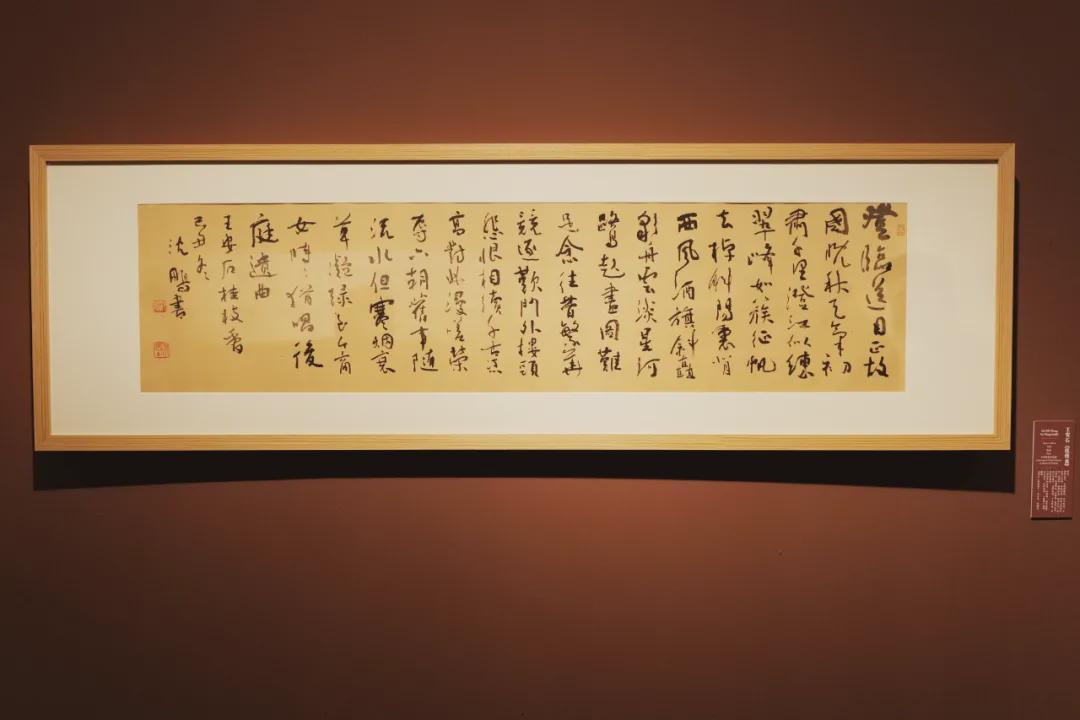 登臨送目正故
國晚秋天氣初
肅千里澄江似練
翠峰如簇征帆
去棹斜陽裏背
西風酒旗斜矗
彩舟雲淡星河
鷺起畫圖難
足念往昔繁華
競逐歎門外樓頭
悲恨相續千古憑
高對此漫嗟榮
辱六朝舊事隨
流水但寒烟衰
草凝綠至今商
女時々猶唱後
庭遺曲
王安石桂枝香
己丑冬
沈鵬書
王安石《桂枝香》